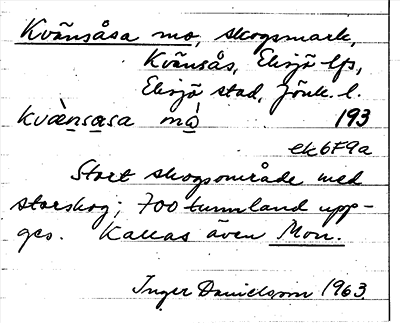 Kvänsåsa mo, skogsmark,
Kvänsås, Eksjö lfs,
Eksjö stad, Jönk. l.
kvä̀nsasa mó 193
ek6F9a
Stort skogsområde med
storskog; 700 tunnland upp-
ges. Kallas även Mon.
Inger Danielsson 1963